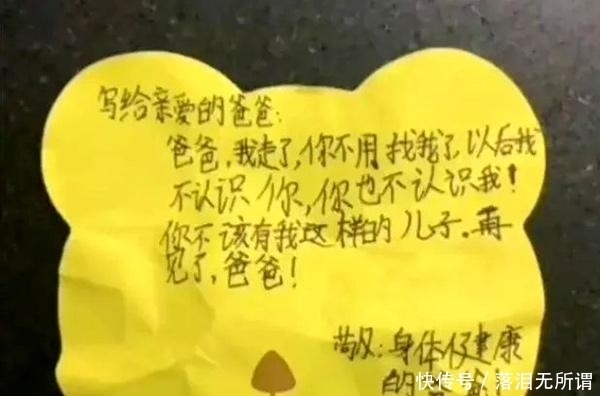 写给亲爱的爸爸:
爸爸,我走了,你不用找我了,以后我
不认识你,你也不认识我!
你不该有我这样的儿子.再
见了,爸爸!
身体健康
的
快传号/落泪无所谓